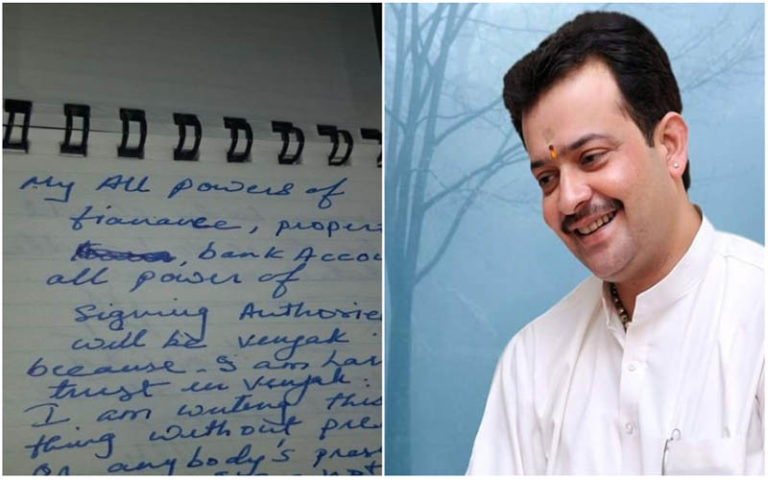 My All powers of
fianance, proper
, bank Accou
all power of
Signing Authorie
will be venjak
because. I am hav
trust in venjak.
I am writing this
thing without pre
or anybody's pres